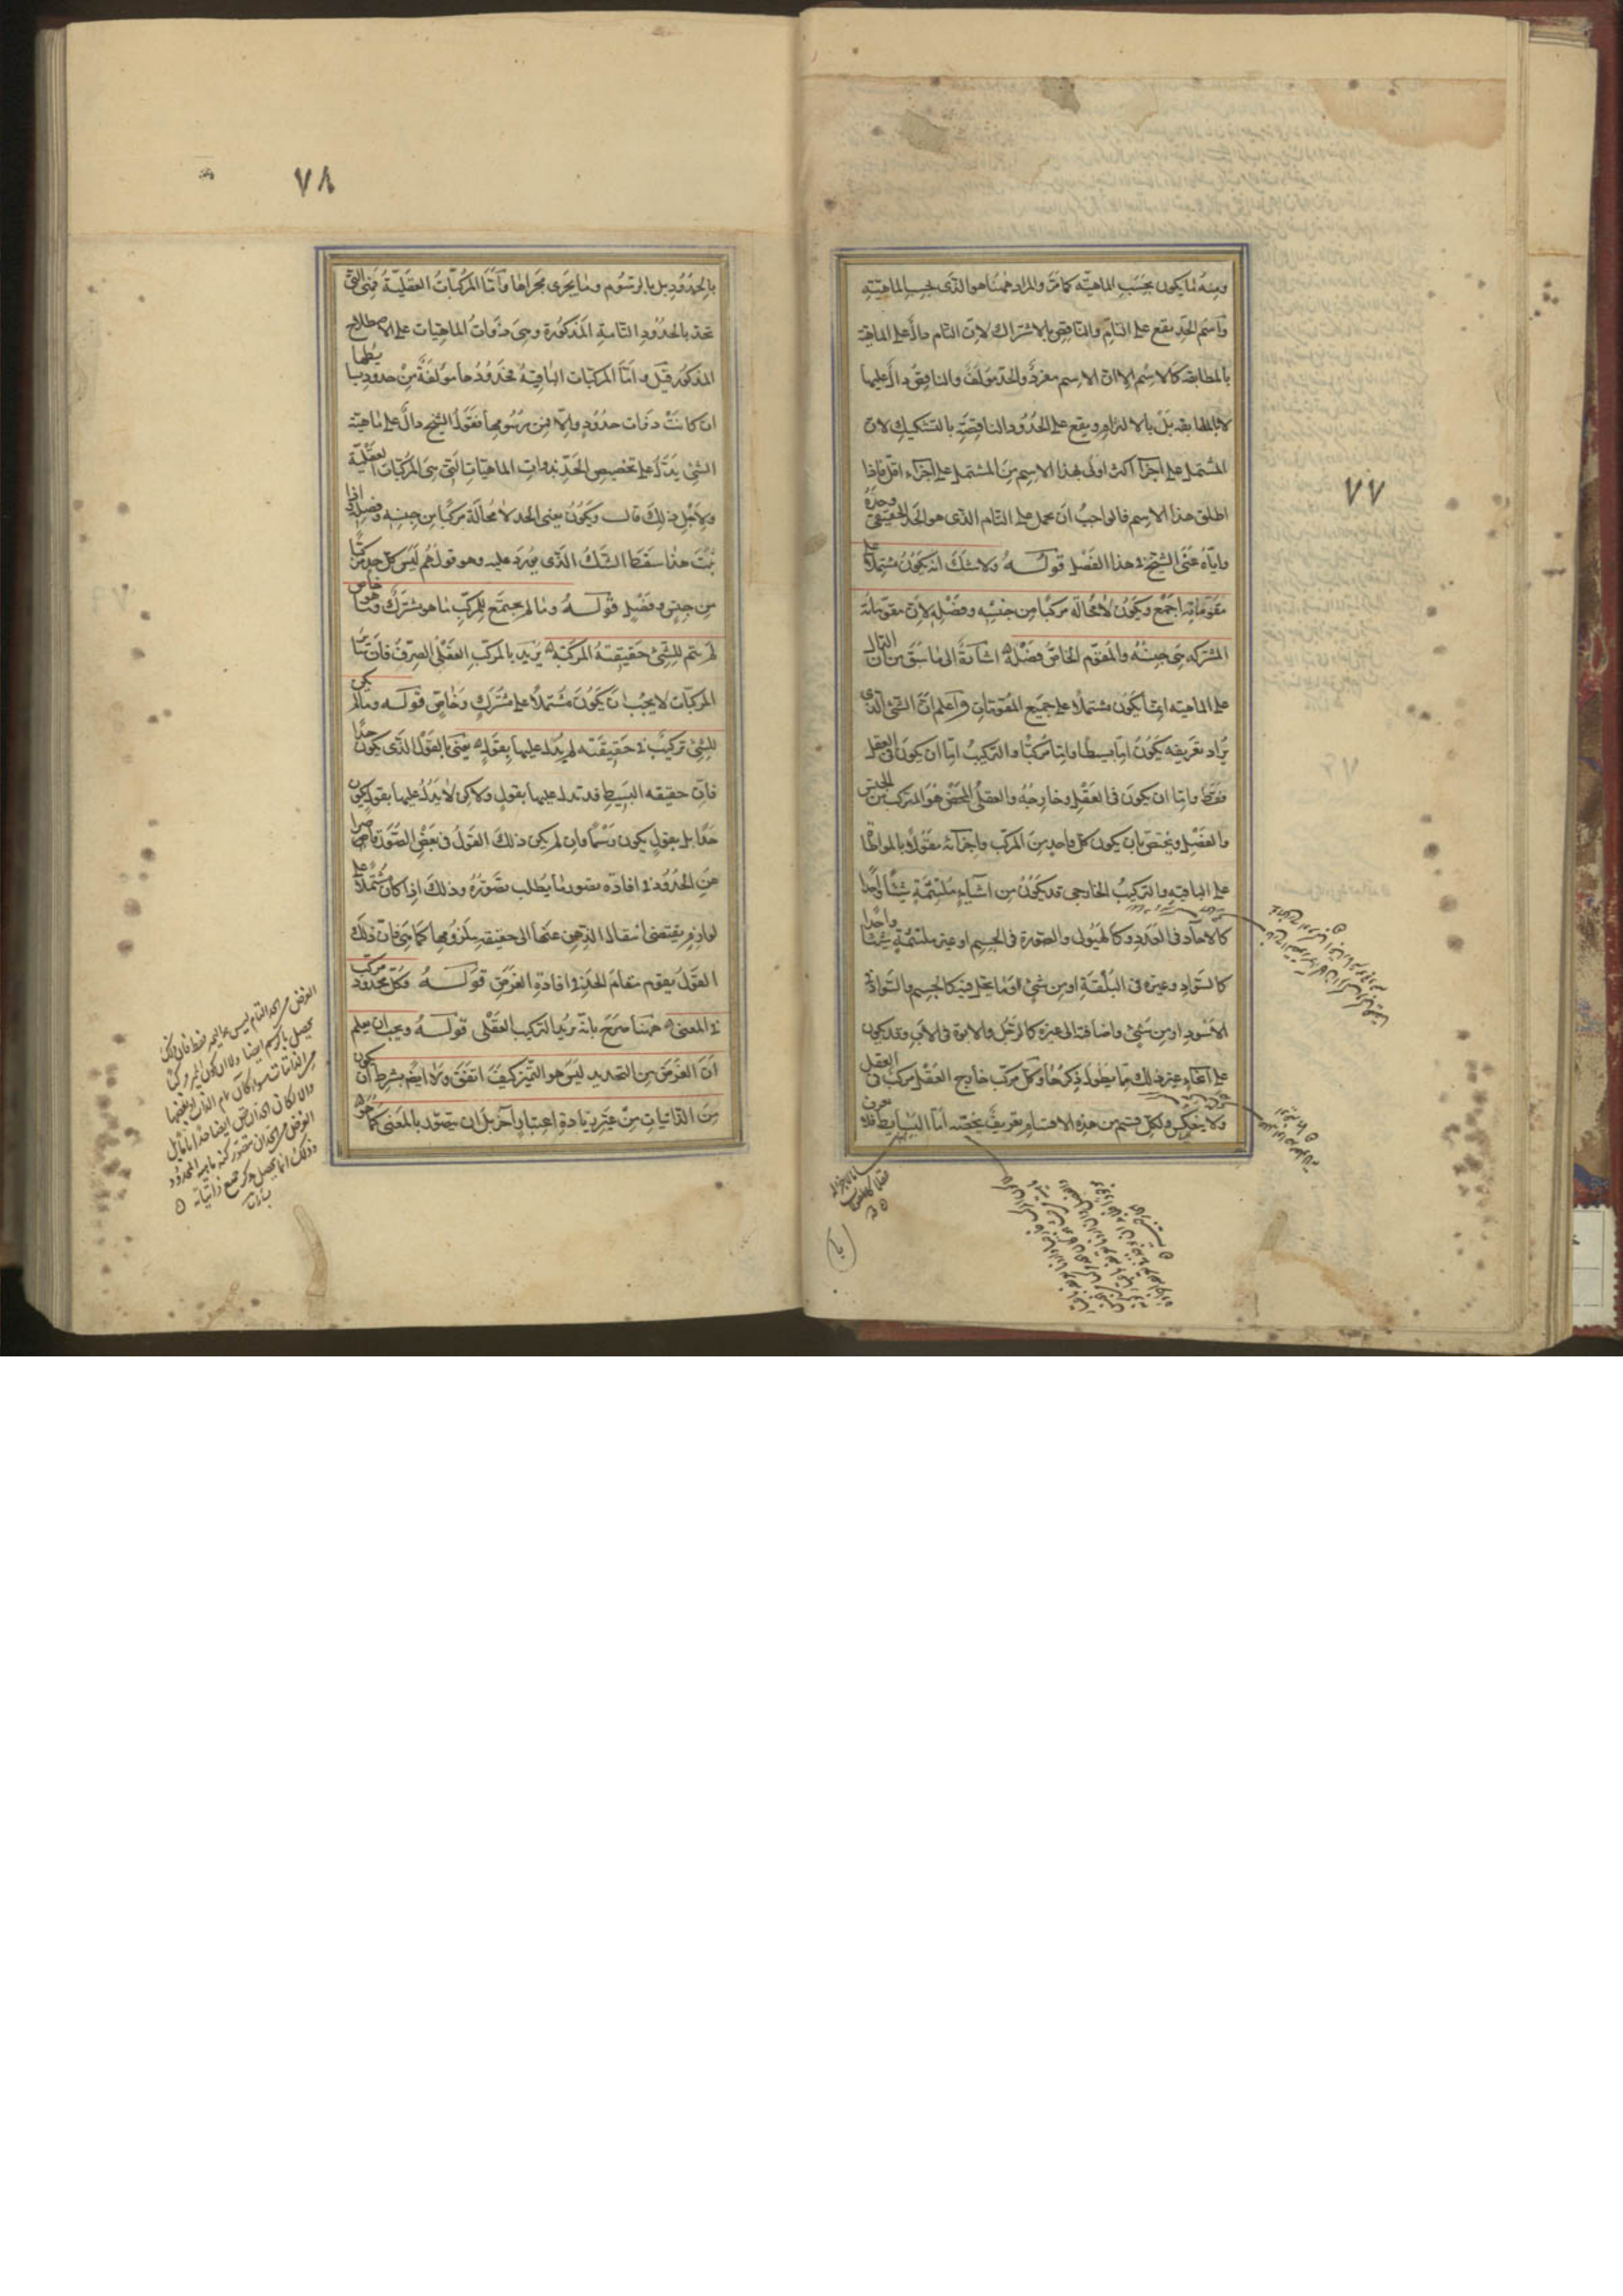 ٧٧
ومنه ما يكون بحسب الماهيّة كما مرّ والمراد ههنا هو الذى بحسب الماهيّة
واسم الحد يقع على التام والناقص بالاشتراك لان التام دالّ على الماهية
بالمطابقة كالاسم الا ان الاسم مفرد والحد مؤلف والناقص دالّ عليها
لا بالمطابقة بل بالالتزام ويقع على الحدود الناقصة بالتشكيك لان
المشتمل على اجزآ اكثر اولى بهذا الاسم من المشتمل على اجزاء اقل فاذا
اطلق هذا الاسم فالواجب ان يحمل على التام الذى هو الحد الحقيقى وحده
واياه عنى الشيخ فى هذا الفصل قوله ولا شك انه يكون مشتملا على
مقوماته اجمع ويكون لا محالة مركبا من جنسه وفصله لان مقوماته
المشتركه هى جنسه والمقوم الخاص فصله اشارة الى ما سبق من ان الدال
على الماهيه انما يكون مشتملا على جميع المقومات واعلم ان الشئ الذى
يراد تعريفه يكون اما بسيطا واما مركبا والتركيب اما ان يكون فى العقل
فقط واما ان يكون فى العقل وخارجه والعقلى المحض هو المتركب من الجنس
والفصل ويختص بان يكون كل واحد من المركب واجزائه مقولا بالمواطاة
على الباقيه والتركيب الخارجى قد يكون من اشيآء ملتئمة شيئا واحدا
كالآحاد فى العدد وكالهيولى والصورة فى الجسم او غير ملتئمة شيئا واحدا
كالسواد وغيره فى البلقة او من شئ وما يحل فيه كالجسم والسواد فى
الاسود او من شئ واضافة الى غيره كالرجل والابوة فى الاب وقد يكون
على انحاء غير ذلك مما يطول ذكرها وكل مركب خارج العقل مركب فى العقل
ولا ينعكس ولكل قسم من هذه الاقسام تعريف يخصه اما البسايط فلا تعرف
٧٨
بالحدود بل بالرسوم وما يجرى مجراها واما المركبات العقلية فهى التى
تحد بالحدود التامة المذكورة وهى ذوات الماهيات على الاصطلاح
المذكور قيل واما المركبات الباقية فحدودها مؤلفة من حدود بسايطها
ان كانت ذوات حدود والّا فمن رسومها فقول الشيخ دال على ماهية
الشئ يدل على تخصيص الحد بذوات الماهيات التى هى المركبات العقلية
ولاجل ذلك قال ويكون يعنى الحد لا محالة مركبا من جنسه وفصله واذا
ثبت هذا سقط الشك الذى يورد عليه وهو قولهم ليس كل حد مركبا
من جنس وفصل قوله وما لم يجتمع للمركب ما هو مشترك وما هو خاص
لم يتم للشئ حقيقته المركبة يريد بالمركب العقلى الصرف فان سائر
المركبات لا يجب ان يكون مشتملا على مشترك وخاص قوله وما لم يكن
للشئ تركيب فى حقيقته لم يدل عليها بقول يعنى بالقول الذى يكون حدا
فان حقيقه البسيط قد تدل عليها بقول ولاكن لا يدل عليها بقول يكون
حدا بل بقول يكون رسما وان لم يكن ذلك القول فى بعض الصور قاصرا
عن الحدود فى افادة تصور ما يطلب تصوره وذلك اذا كان مشتملا على
لوازم يقتضى انتقال الذهن عنها الى حقيقة ملزومها كما هى فان ذلك
القول يقوم مقام الحد فى افادة الغرض قوله فكل محدود مركب
فى المعنى ههنا صرح بانه يريد التركيب العقلى قوله ويجب ان يعلم
ان الغرض من التحديد ليس هو التميز كيف اتفق ولا ايضا بشرط ان يكون
من الذاتيات من غير زيادة اعتبار آخر بل ان يتصور بالمعنى كما هو
الغرض من الحد التام ليس هو التميز فقط فان ذلك
يحصل بالرسم ايضا ولا ان يكون التميز
من الذاتيات سواء كان تمام الذاتيات او بعضها
والا لكان الحد الناقص ايضا حدا تاما بل
الغرض من الحد ان يتصور كنه ماهية المحدود
وذلك انما يحصل بذكر جميع ذاتياته